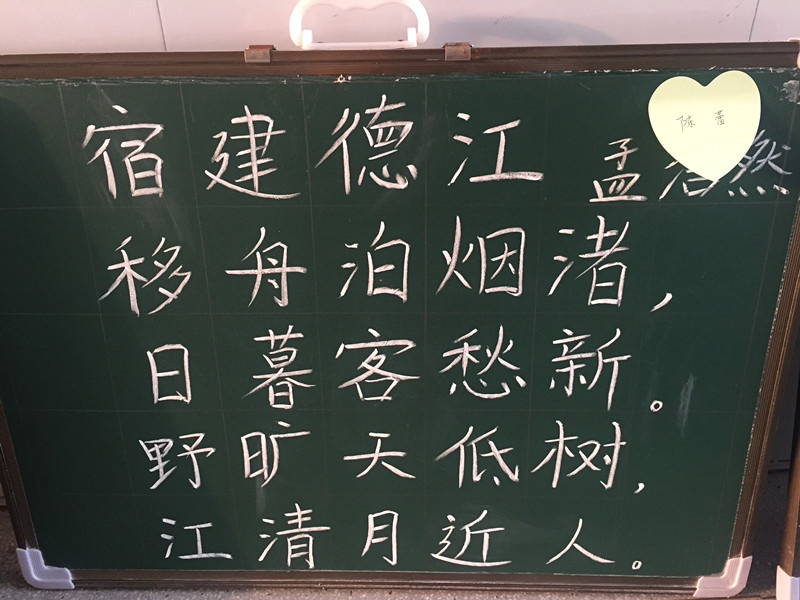 宿建德江
孟浩然
陈蕾
移舟泊烟渚，
日暮客愁新。
野旷天低树，
江清月近人。